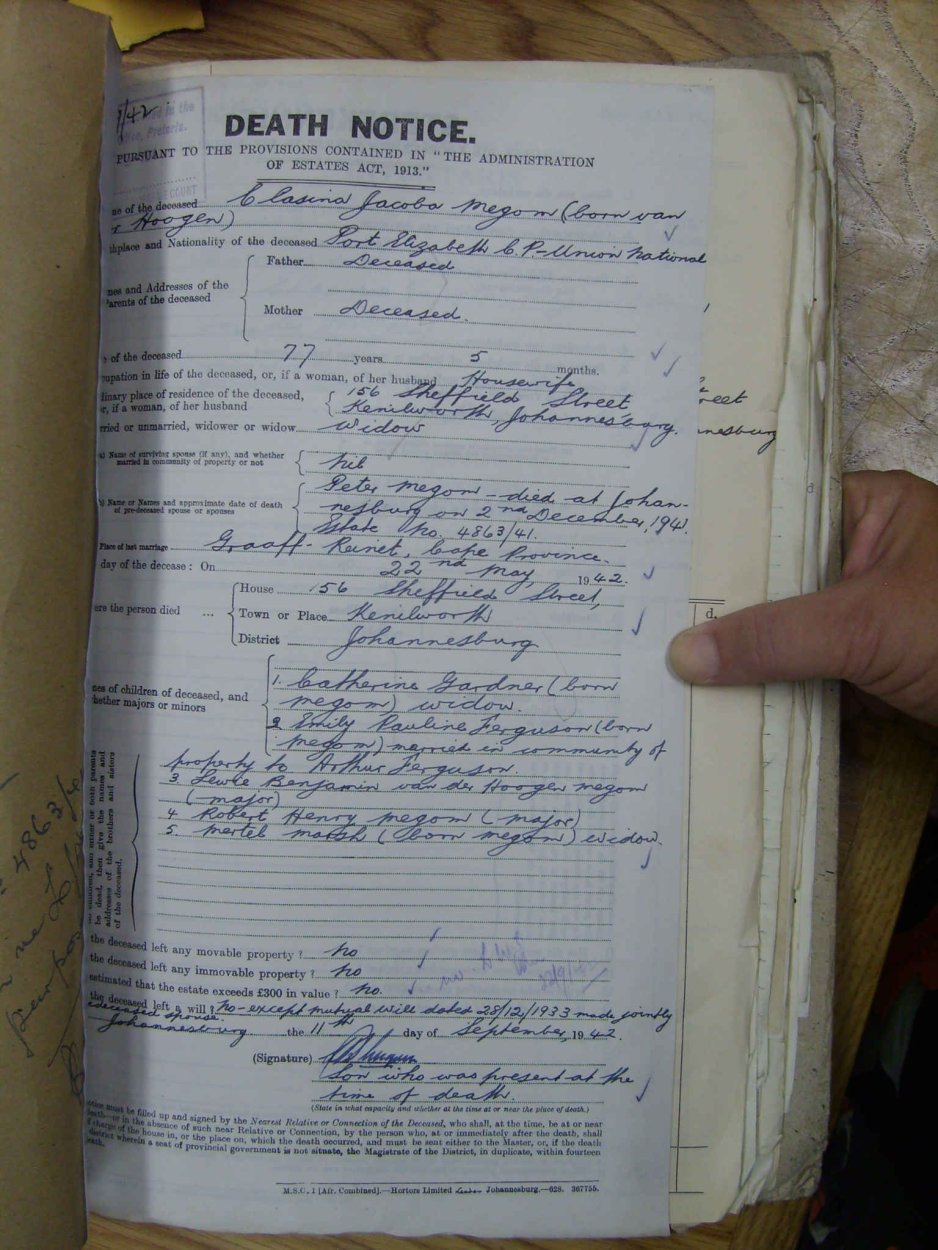 /42
in the
ce, Pretoria.
COUNT
DEATH NOTICE.
PURSUANT TO THE PROVISIONS CONTAINED IN "THE ADMINISTRATION
OF ESTATES ACT, 1913."
me of the deceased Clasina Jacoba Megom (born van
r Hoogen)
thplace and Nationality of the deceased Port Elizabeth C.P-Union National
Father Deceased
mes and Addresses of the
Parents of the deceased
Mother Deceased.
of the deceased 77 years 5 months.
cupation in life of the deceased, or, if a woman, of her husband Housewife
dinary place of residence of the deceased, 156 Sheffield Street
r, if a woman, of her husband Kenilworth, Johannesburg.
rried or unmarried, widower or widow Widow
a) Name of surviving spouse (if any), and whether
married in community of property or not Nil
b) Name or Names and approximate date of death
of pre-deceased spouse or spouses
Peter Megom - died at Johan-
nesburg on 2nd December, 194
Estate No. 4863/41.
Place of last marriage Graaff-Reinet, Cape Province.
day of the decease: On 22nd May, 1942.
House 156 Sheffield Street,
ere the person died ... Town or Place Kenilworth
District Johannesburg
mes of children of deceased, and
hether majors or minors
1. Catherine Gardner (born
Megom) widow.
2 Emily Pauline Ferguson (born
Megom) married in community of
property to Arthur Ferguson.
3 Lewie Benjamin van der Hoogen Megom
(major)
4 Robert Henry Megom (major)
5. Mertel Marsh (born Megom) widow.
no children, and either or both parents
be dead, then give the names and
addresses of the brothers and sisters
of the deceased.
the deceased left any movable property? No
the deceased left any immovable property? No
estimated that the estate exceeds £300 in value? No.
the deceased left a will? No-except mutual will dated 28/12/1933 made jointly
edeceased spouse.
Johannesburg the 11th day of September, 1942.
(Signature)
Son who was present at the
time of death.
(State in what capacity and whether at the time at or near the place of death.)
otice must be filled up and signed by the Nearest Relative or Connection of the Deceased, who shall, at the time, be at or near
death—or in the absence of such near Relative or Connection, by the person who, at or immediately after the death, shall
f charge of the house in, or the place on, which the death occurred, and must be sent either to the Master, or, if the death
district wherein a seat of provincial government is not situate, the Magistrate of the District, in duplicate, within fourteen
death.
M.S.C. 1 [Afr. Combined].—Hortors Limited Johannesburg.—628. 367755.
reet
nnesburg
d.
4863/4